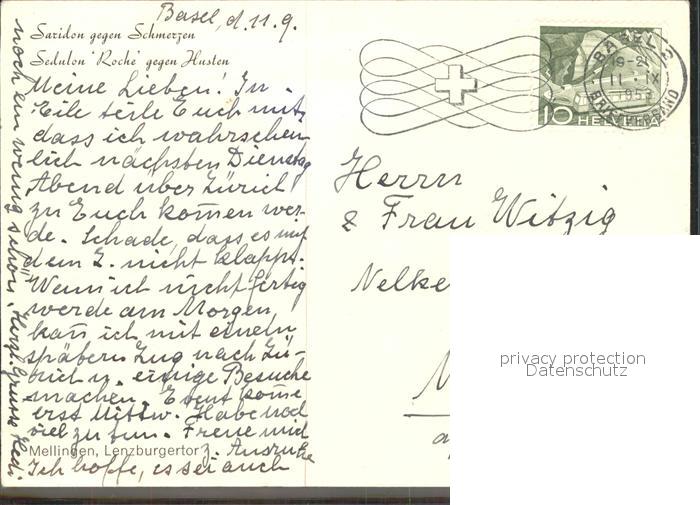 Basel, d. 11.9.
Saridon gegen Schmerzen
Sedulon 'Roche' gegen Husten
Meine Lieben! In
Eile teile Euch mit,
dass ich wahrschein
lich nächsten Dienstag
Abend über Zürich
zu Euch kom̄en wer-
de. Schade, dass es mit
dem Z. nicht klappt.
Wenn ich nicht fertig
werde am Morgen,
kan̄ ich mit einem
spätern Zug nach Zü-
rich u. einige Besuche
machen. Event. kom̄e
erst Mittw. Habe noch
viel zu tun. Freue mich
z. Ausruhe
Mellingen, Lenzburgertor
Ich hoffe, es sei auch
noch ein wenig schön. Herzl. Grüsse Hedi.
BASEL 2
19-2
11. IX
1953
BRIEFVERSAND
10 HELVETIA
Herrn
& Frau Witzig
Nelke
privacy protection
Datenschutz